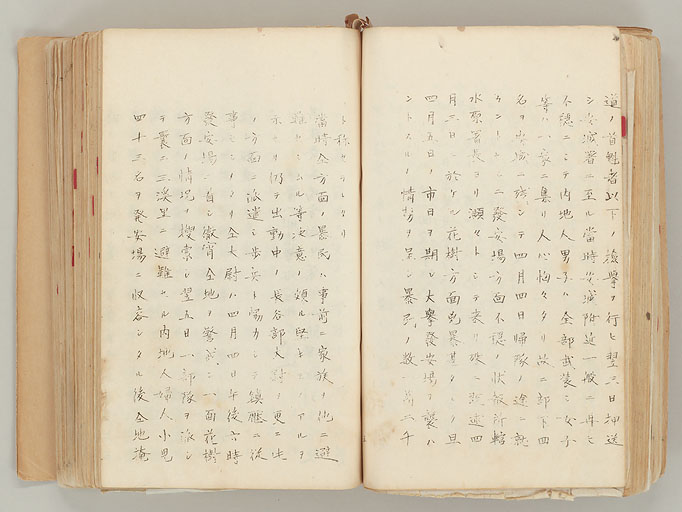 道ノ首魁者以下ノ検挙ヲ行ヒ翌三日押送
シ安城署ニ至ル当時安城附近一般ニ再ヒ
不穏ニシテ内地人男子ハ全部武装シ女子
等ハ一家ニ集リ人心恟々タリ故ニ部下四
名ヲ安城ニ残シテ四月四日帰隊ノ途ニ就
ケントシニ發安場方面不穏ノ状報所轄
水原署長ヨリ頻々トシテ来リ殊ニ
月三日ノ於ケル花樹方面兇暴甚タシク且
四月五日ノ市日ヲ期シ大挙發安場ヲ襲ハ
ントスルノ情勢ヲ呈シ暴民ノ数一万二千
ト称セラレタリ
當時仝方面ノ暴民ハ事前ニ家族ヲ他ニ避
難セシムル等決意ノ頗ル堅キモノアルヲ
以テ出動中ノ長谷部大尉ヲ更ニ
ノ方面ニ派遣シ歩兵ト協力シテ鎮壓ニ従
事セシメタリ仝大尉ハ四月四日午後六時
發安場ニ着シ徹宵仝地ヲ警戒シ一面花樹
方面ノ情況ヲ捜索シ翌五日一部隊ヲ派シ
テ曩ニ三溪里ニ避難セル内地人婦人小児
四十三名ヲ発安場ニ収容シタル後仝地滝